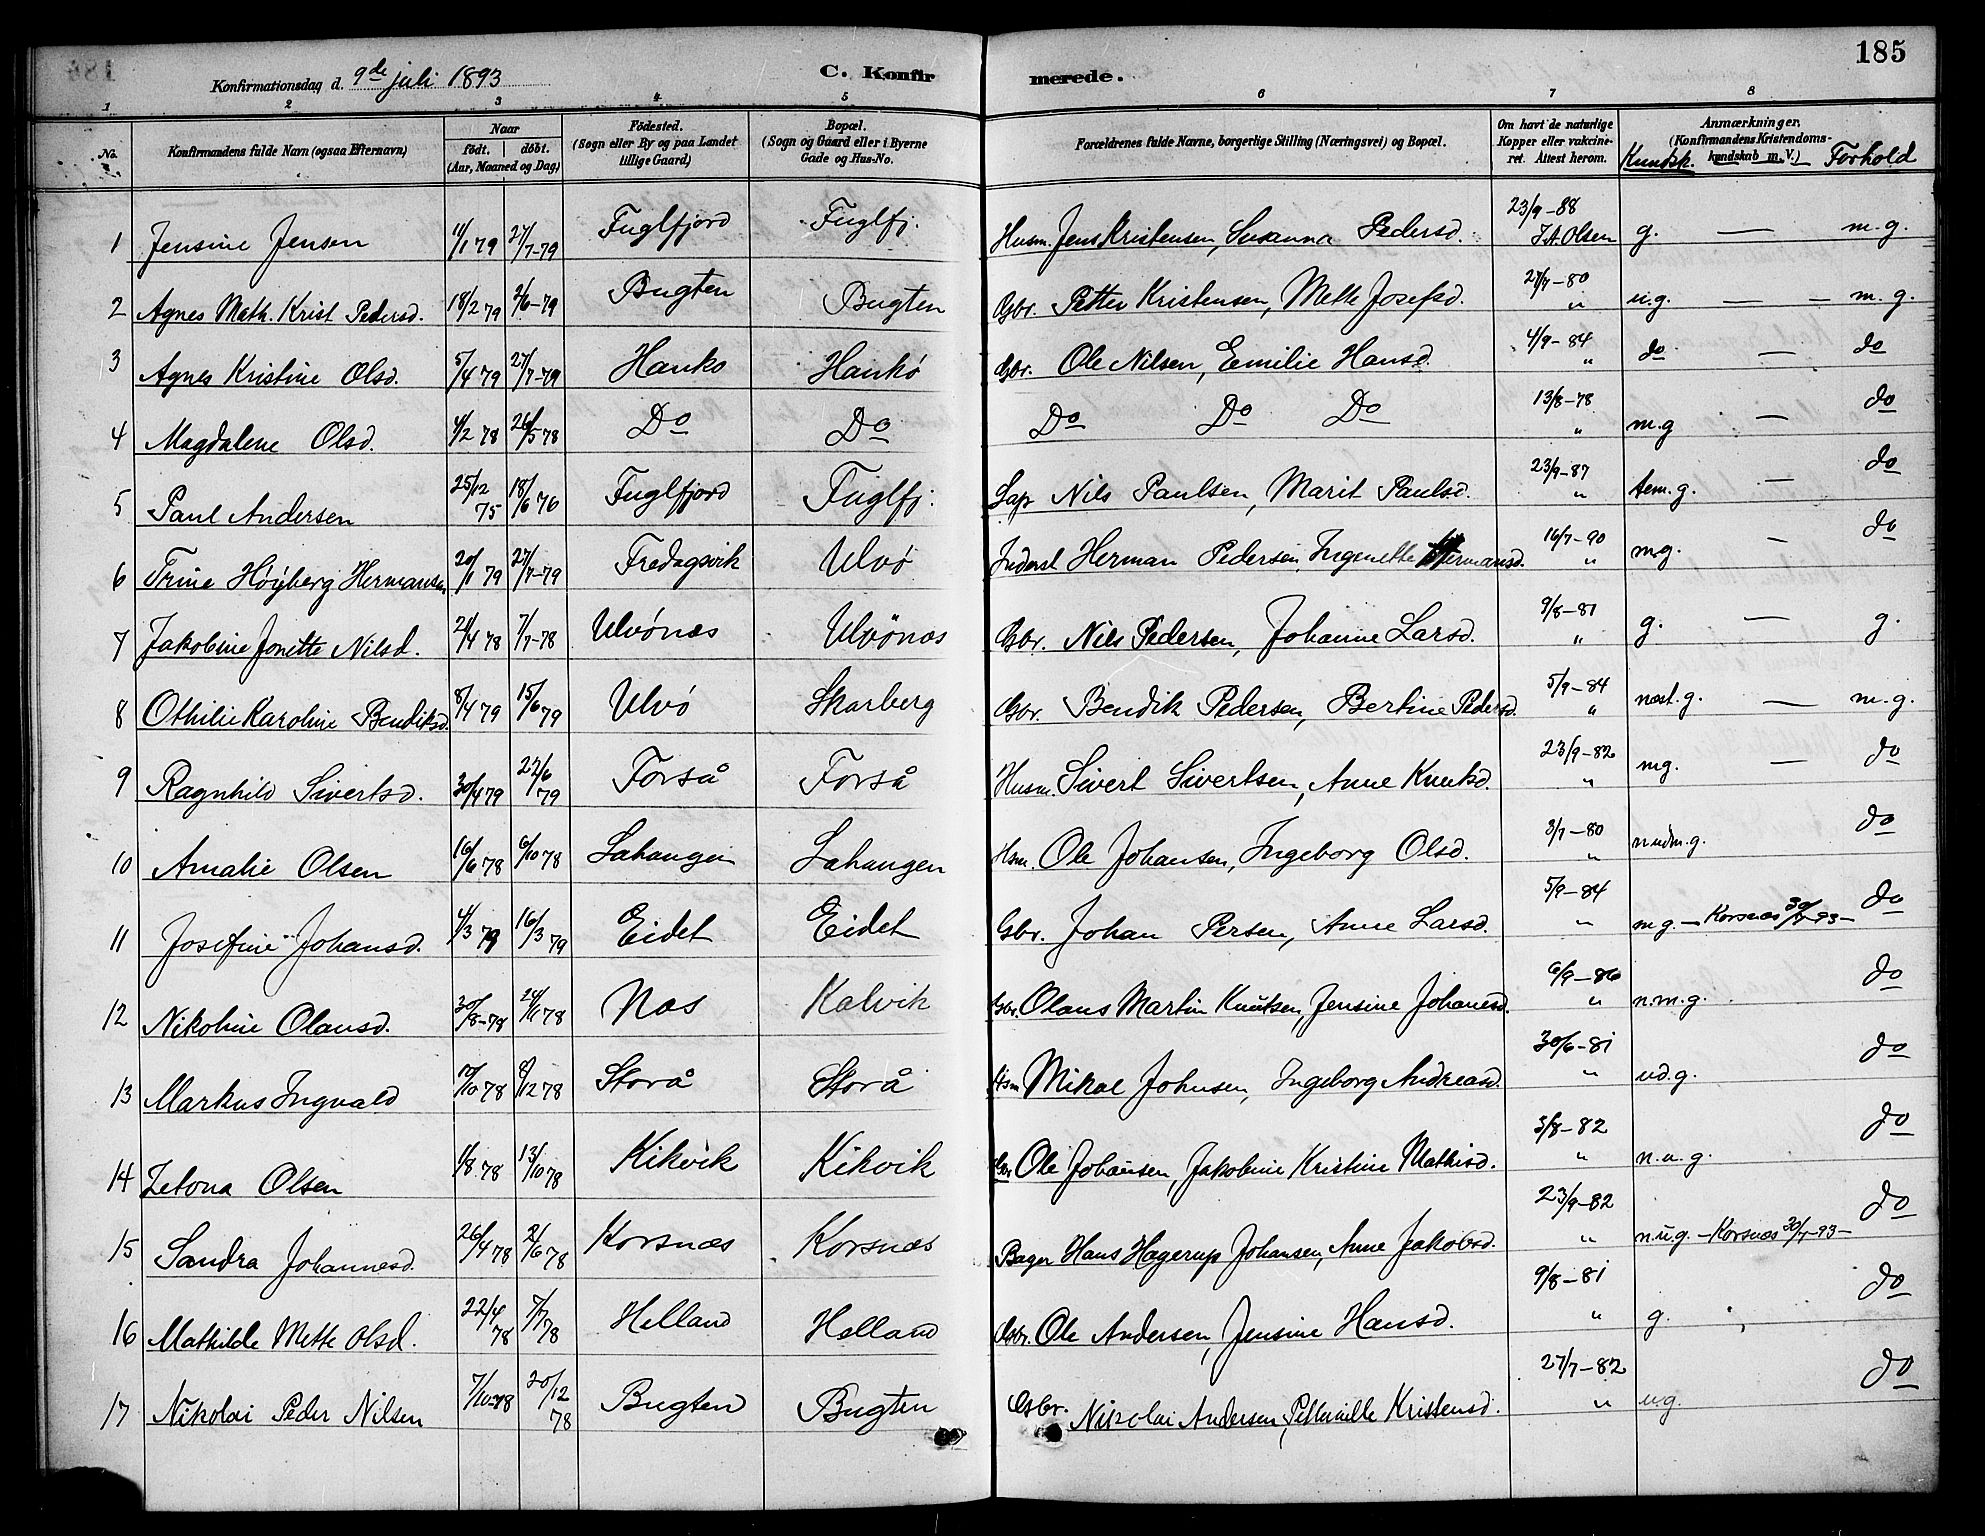 185
Konfirmationsdag d. 9de juli 1893
C. Konfirmerede.
1 2 3 4 5 6 7 8
No. | Konfirmandens fulde Navn (ogsaa Efternavn) | Naar født. døbt. (Aar, Maaned og Dag) | Fødested. (Sogn eller By og paa Landet tillige Gaard) | Bopæl. (Sogn og Gaard eller i Byerne Gade og Hus-No. | Forældrenes fulde Navne, borgerlige Stilling (Næringsvei) og Bopæl. | Om havt de naturlige Kopper eller vakcineret. Attest herom. | Anmærkninger, (Konfirmandens Kristendomskundskab m. V.) Kundsk. Forhold
1 Jensine Jensen | 11/1 79 | 27/7-79 | Fuglfjord | Fuglfj. | Husm. Jens Kristensen, Susanna Pedersd. | 23/9-88 J.A. Olsen | g. — m.g.
2 Agnes Math. Krist Pedersd. | 18/2 79 | 2/6-79 | Bugten | Bugten | Gbr. Petter Kristensen, Mette Josefsd. | 27/7-80 " | u.g. — — m.g.
3 Agnes Kristine Olsd. | 5/4 79 | 27/7-79 | Hanko | Hankø | Gbr. Ole Nilsen, Emilie Hansd. | 4/9-84 " | do — do
4 Magdalene Olsd. | 4/2 78 | 26/5 78 | Do | Do | Do Do Do | 13/8-78 " | m.g — do
5 Paul Andersen | 25/12 75 | 18/6 76 | Fuglfjord | Fuglfj. | Lap Nils Paulsen, Marit Paulsd. | 23/9-87 " | tem.g. — do
6 Trine Höyberg Hermansen | 20/1 79 | 27/7-79 | Fredagsvik | Ulvø | Inderst Herman Pedersen, Ingenette Hermansd. | 16/7-90 " | mg. — do
7 Jakobine Jonette Nilsd. | 21/4 78 | 7/7-78 | Ulvónæs | Ulvönæs | Gbr. Nils Pedersen, Johanne Larsd. | 9/8-81 " | g. — g.
8 Othilie Karoline Bendiksd. | 8/4 79 | 15/6 79 | Ulvø | Skarberg | Gbr. Bendik Pedersen, Bertine Pedersd. | 5/9-84 " | næst.g. — m.g.
9 Ragnhild Sivertsd. | 30/4 79 | 22/6 79 | Forså | Forså | Husm. Sivert Sivertsen, Anne Knutsd. | 23/9-82 " | mg. — do
10 Amalie Olsen | 16/6 78 | 6/10 78 | Lahangen | Lahangen | Hsm. Ole Johansen, Ingeborg Olsd. | 3/7-80 " | nudm.g. do
11 Josefine Johansd. | 4/3 79 | 16/3 79 | Eidet | Eidet | Gbr. Johan Persen, Anne Larsd. | 5/9-84 " | mg.—Korsnæs 30/7-93— do
12 Nikoline Olausd. | 30/8-78 | 24/11 78 | Næs | Kalvik | Gbr. Olaus Martin Knutsen, Jensine Johanesd. | 6/9-86 " | n.m.g. do
13 Markus Ingvald | 10/10 78 | 8/12 78 | Storå | Storå | Hsm Mikal Johnsen, Ingeborg Andreasd. | 30/6-81 " | ud.g. do
14 Zetona Olsen | 1/8 78 | 13/10 78 | Kikvik | Kikvik | Gbr. Ole Johansen, Jakobine Kristine Mathisd. | 3/8-82 " | n.u.g. do
15 Sandra Johannesd. | 26/4 78 | 2/6 78 | Korsnæs | Korsnæs | Bager Hans Hagerup Johansen, Anne Jakobsd. | 23/9-82 " | n.u.g.—Korsnæs 30/7-93— do
16 Mathilde Mette Olsd. | 22/4 78 | 7/7 78 | Helland | Helland | Gsbr. Ole Andersen, Jensine Hansd. | 9/8-81 " | g. do
17 Nikolai Peder Nilsen | 7/10-78 | 20/12 78 | Bugten | Bugten | Gsbr. Nikolai Andersen, Petternille Kristensd. | 27/7-82 " | ug. do